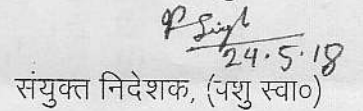 P Singh
24.5.18
संयुक्त निदेशक, (पशु स्वा०)